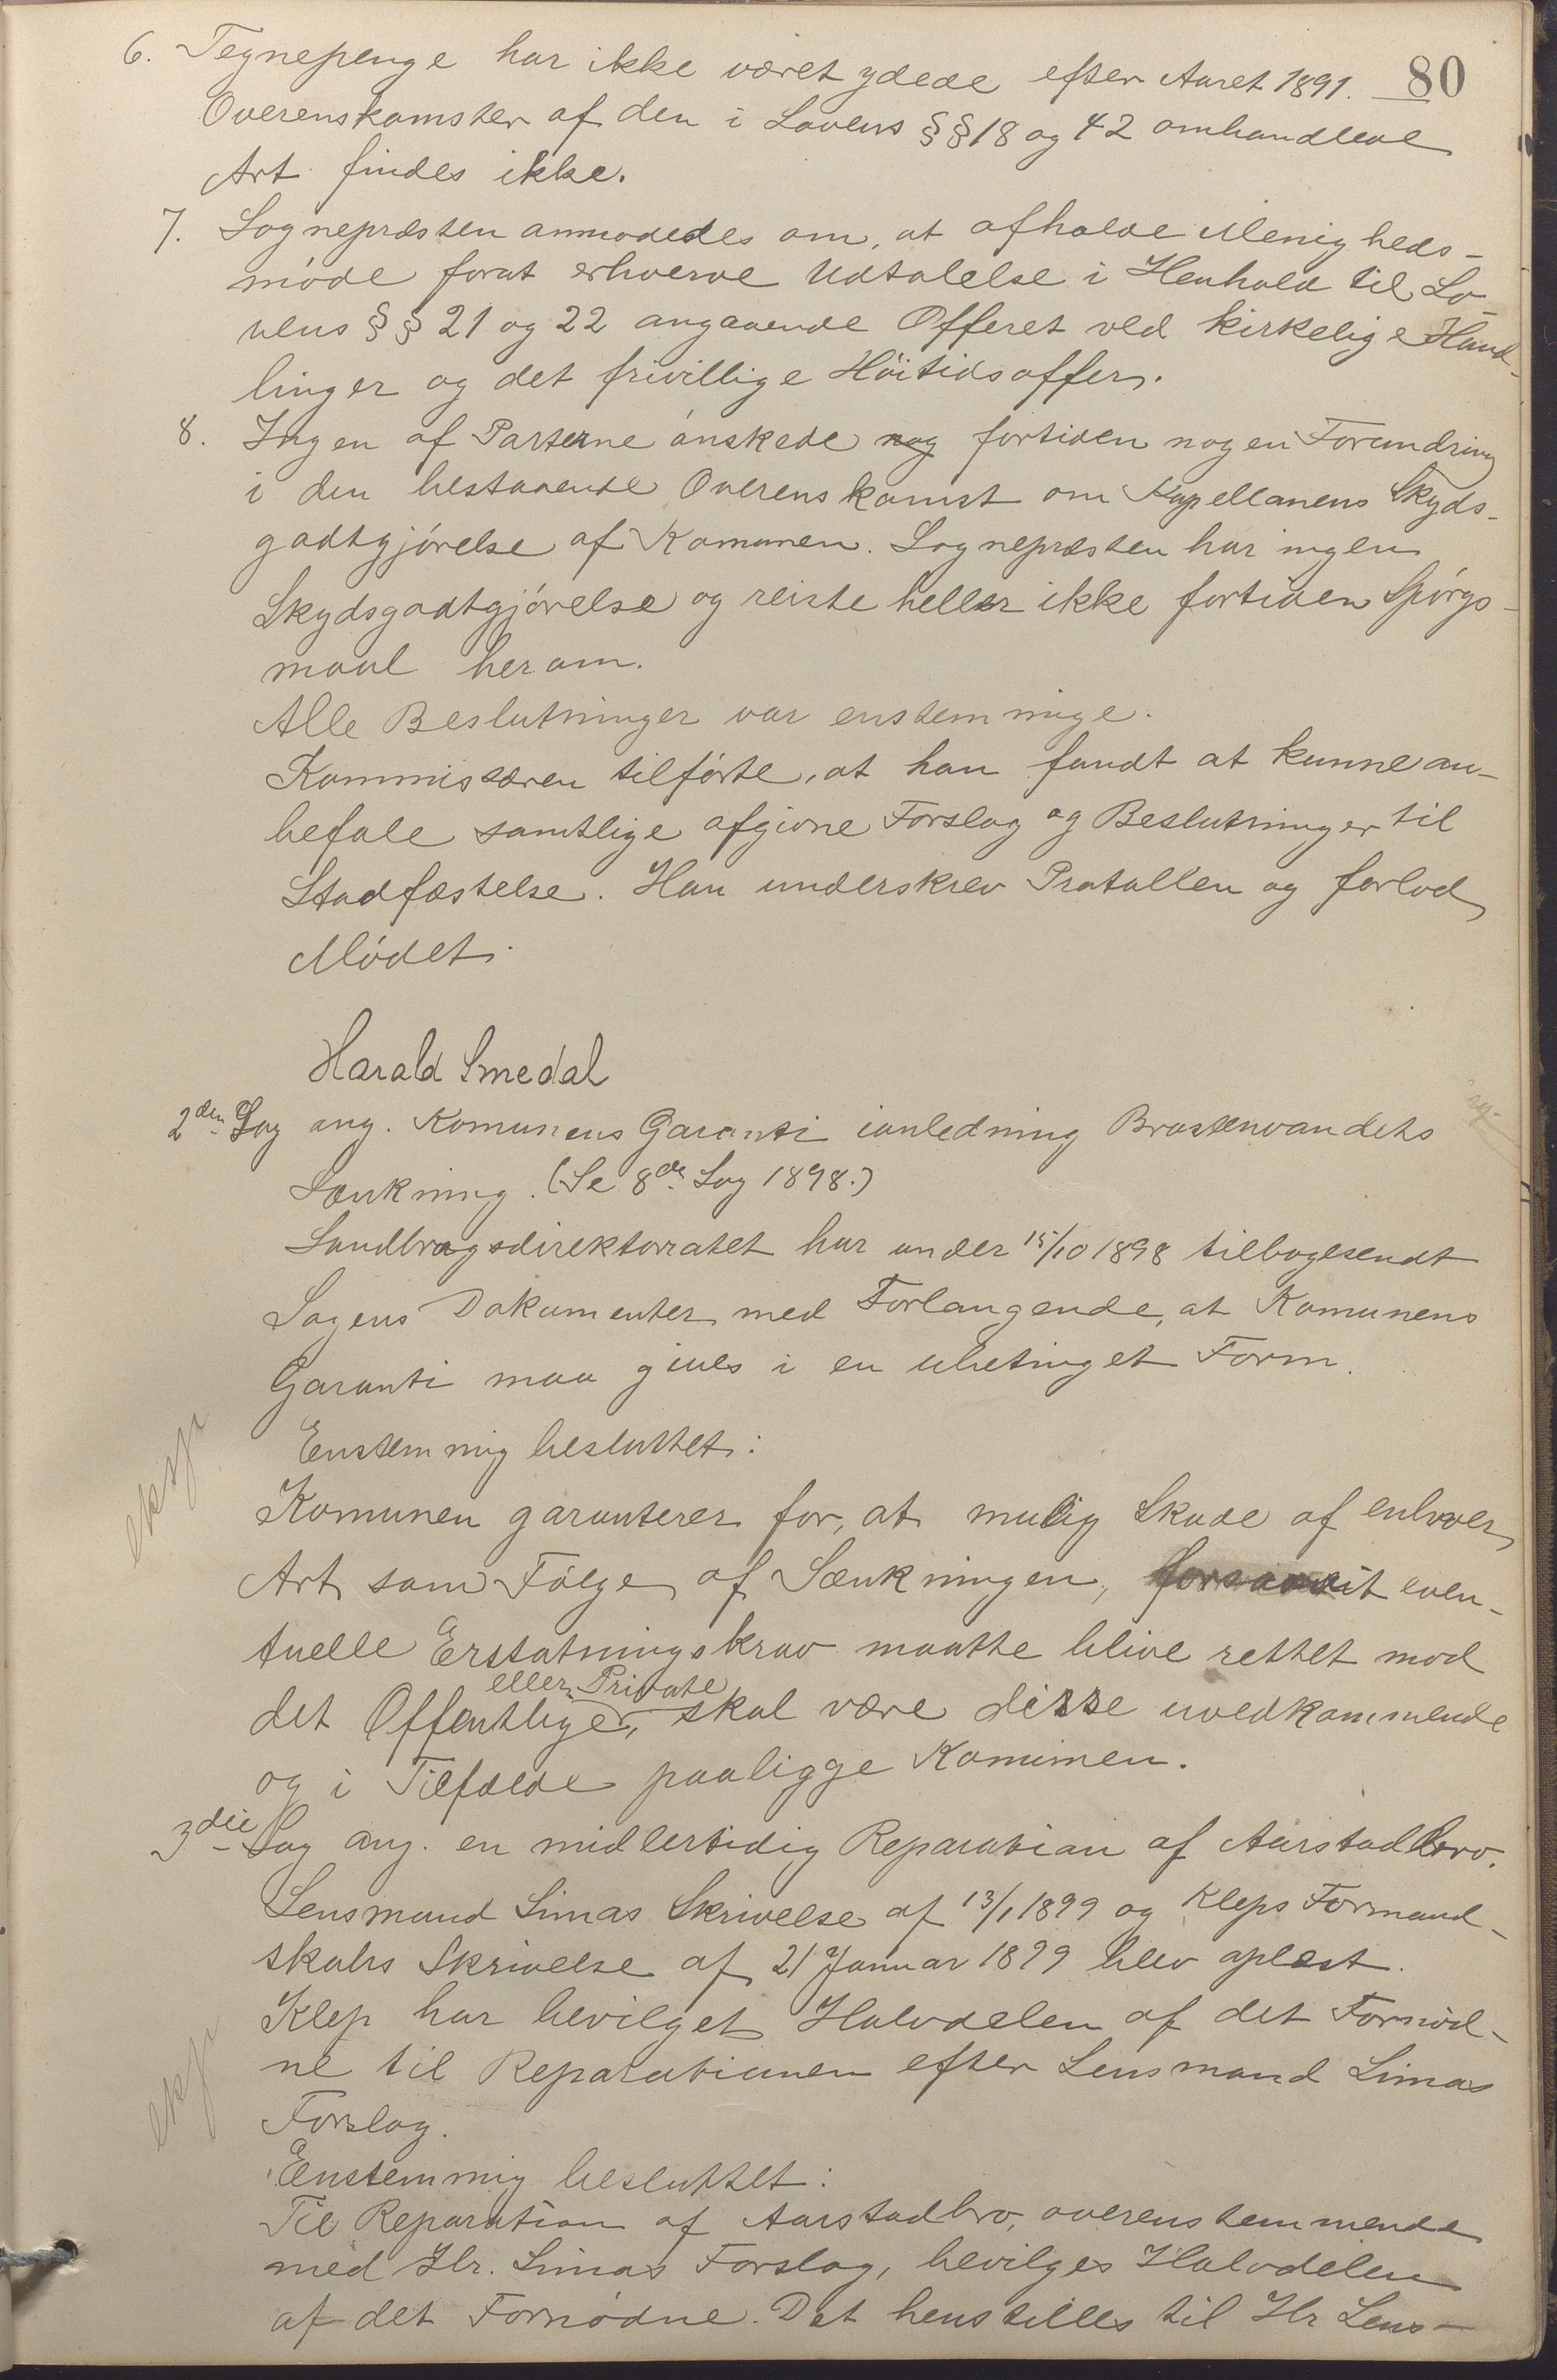 80
6. Tegnepenge har ikke været ydede efter Aaret 1891.
Overenskomster af den i Lovens §§ 18 og 42 omhandlede
Art findes ikke.
7. Sognepræsten anmodedes om, at afholde Menigheds-
møde forat erhverve Udtalelse i Henhold til Lo-
vens §§ 21 og 22 angaaende Offeret ved kirkelige Hand-
linger og det frivillige Höitidsoffer.
8. Ingen af Parterne ønskede nog fortiden nogen Forandring
i den bestaaende Overenskomst om Kapellanens Skyds-
godtgjørelse af Komunen. Sognepræsten har ingen
Skydsgodtgjørelse og reiste heller ikke fortiden Spörgs-
maal herom.
Alle Beslutninger var enstemmige.
Kommissæren tilførte, at han fandt at kunne an-
befale samtlige afgivne Forslag og Beslutninger til
Stadfæstelse. Han underskrev Protollen og forlod
Mödet.
Harald Smedal
2den Sag ang. Komunens Garanti ianledning Brostenvandets
Sænkning. (Se 8de Sag 1898.)
Landbrugsdirektorratet har under 15/10 1898 tilbagesendt
Sagens Dokumenter med Forlangende, at Komunens
Garanti maa gives i en ubetinget Form.
Enstemmig besluttet:
eksp
Komunen garanterer for, at mulig Skade af enhver
Art som Fölge af Sænkningen, forsaavit even-
tuelle Erstatningskrav maatte blive rettet mod
eller Private
det Offentlige, skal være disse uvedkommende
og i Tilfælde paaligge Komunen.
3die Sag ang. en midlertidig Reparation af Aarstadbro.
Lensmand Limas Skrivelse af 13/1 1899 og Kleps Formand-
skabs Skrivelse af 21 Januar 1899 blev oplæst.
Klep har bevilget Halvdelen af det Fornöd-
ne til Reparationen efter Lensmand Limas
eksp
Forslag.
Enstemmig besluttet:
Til Reparation af Aarstadbro, overenstemmende
med Hr. Limas Forslag, bevilges Halvdelen
af det Fornödne. Det henstilles til Hr Lens-